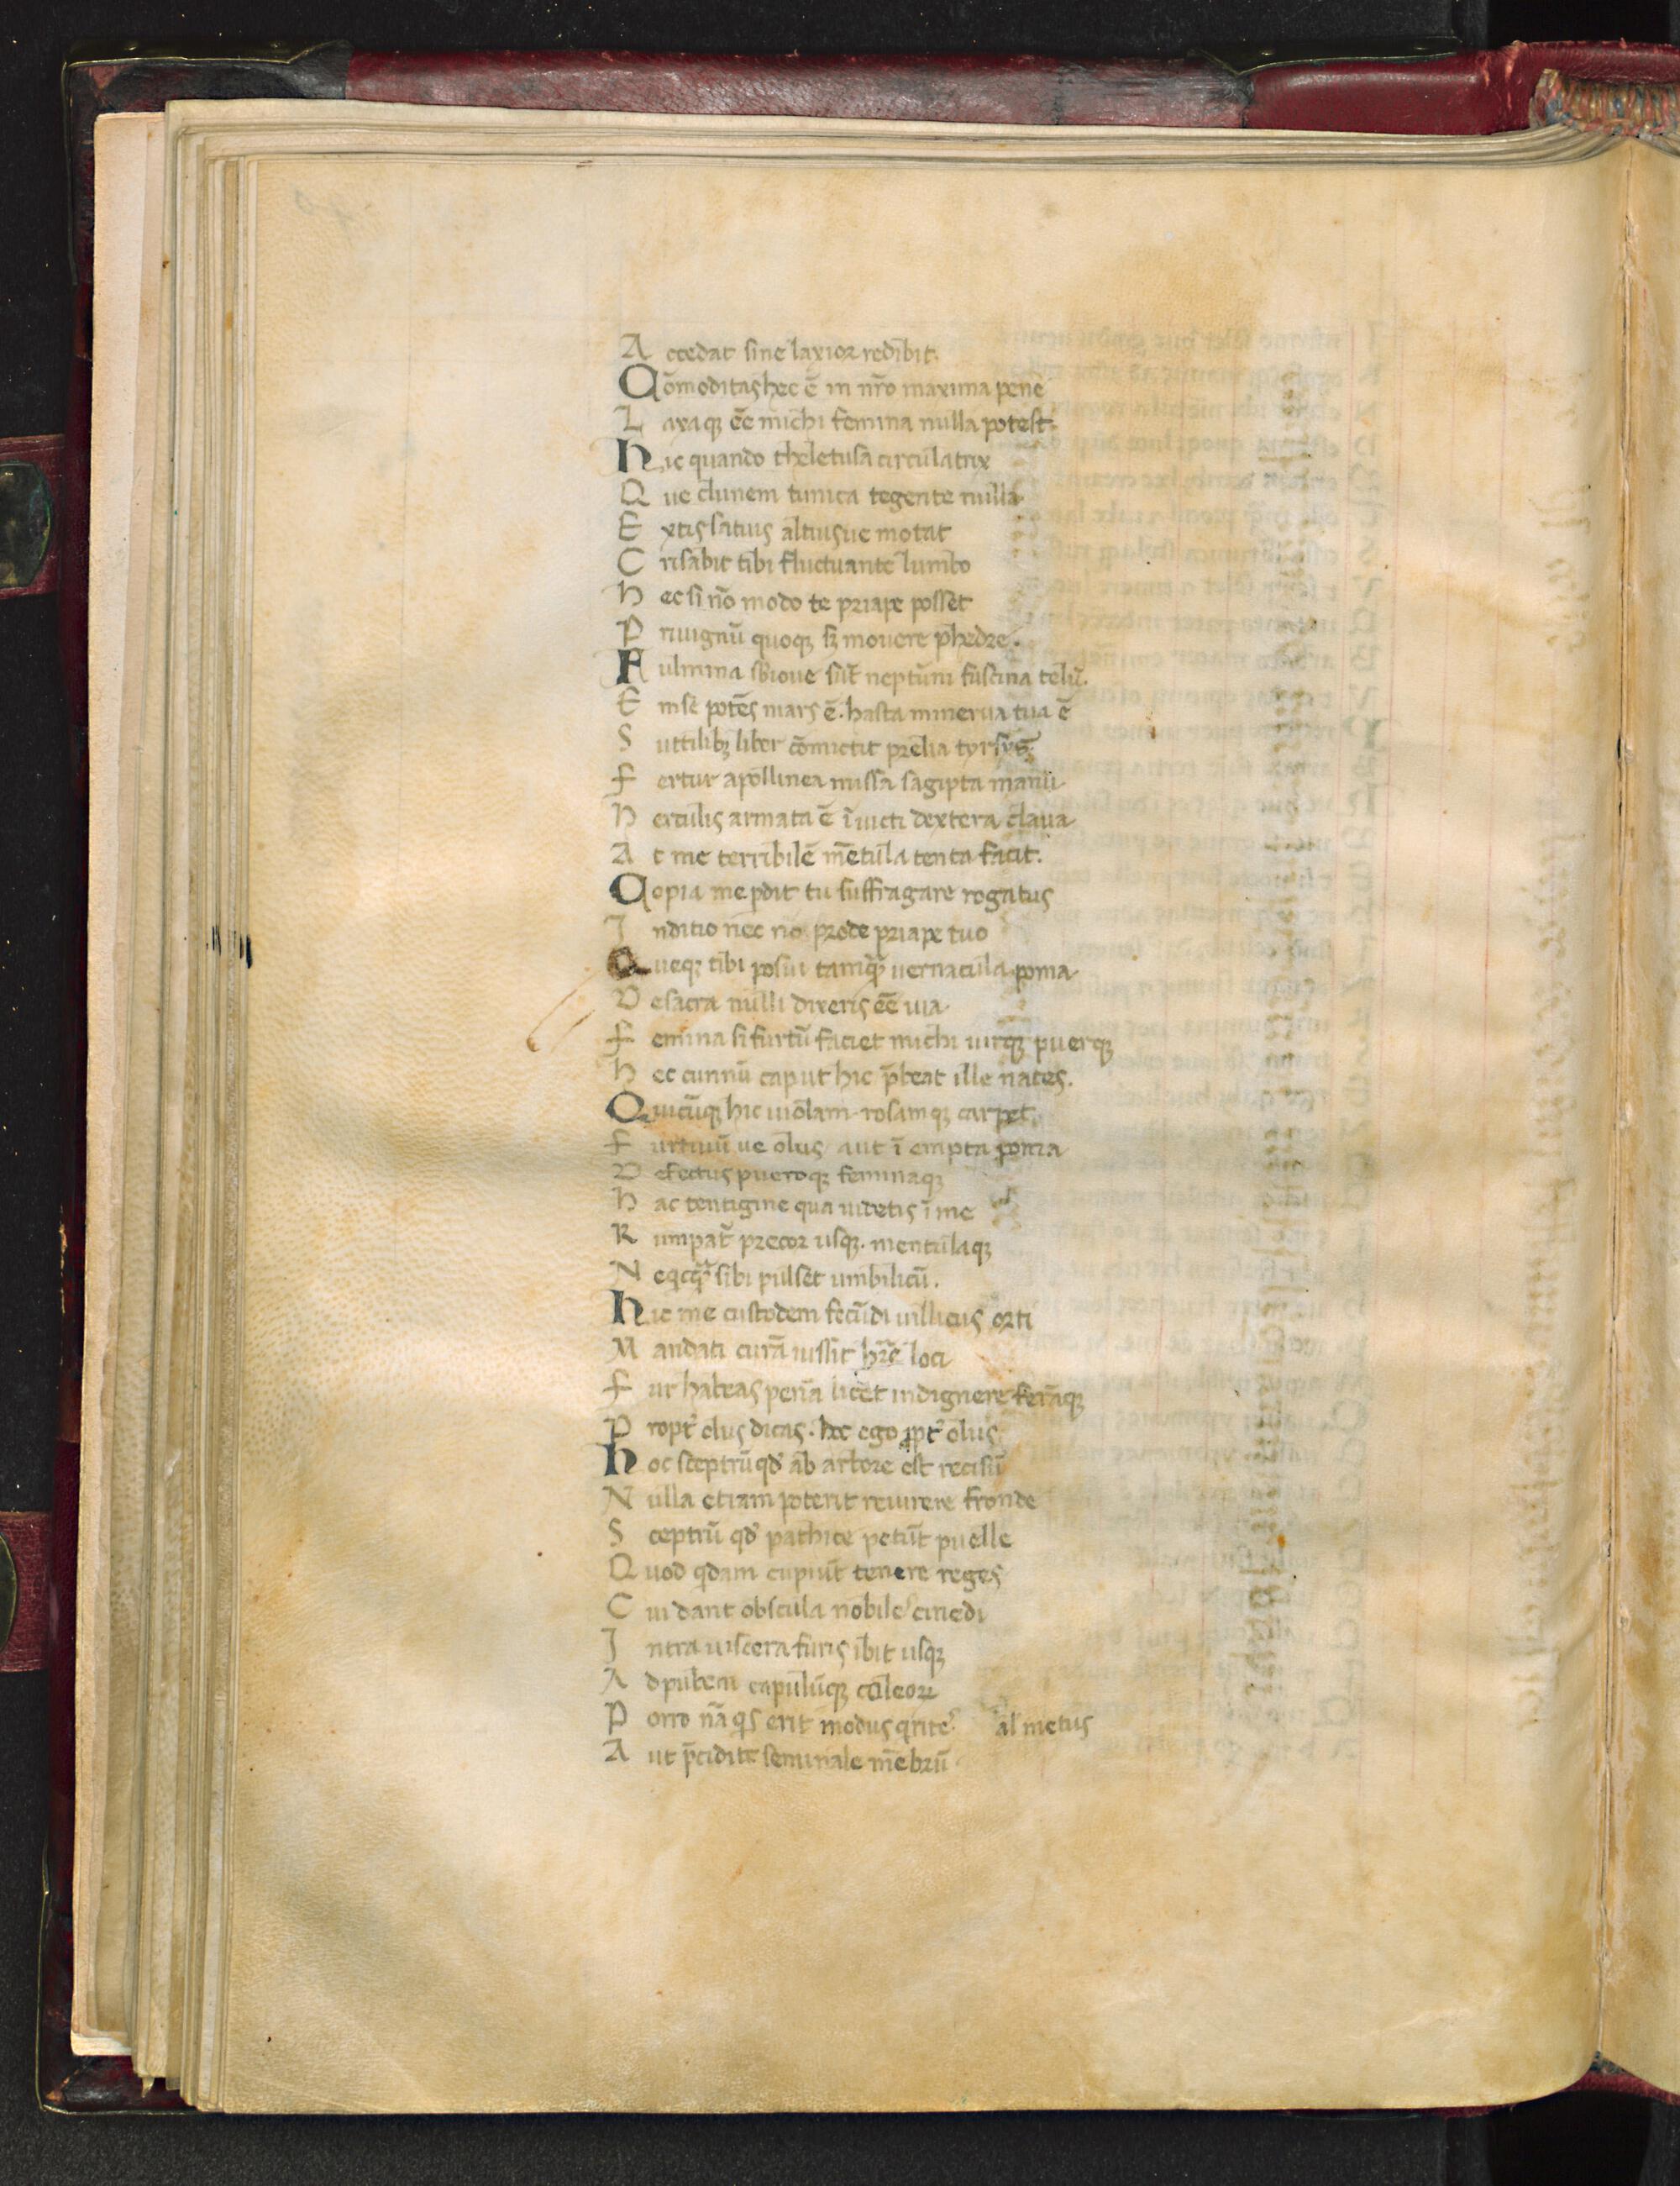 A ccedat sine laxior redibit.
Cōmoditas hec ē in nr̄o maxima pene
L axaqꝫ ēē michi femina nulla potest.
Hic quando theletusa circulatrix
Q ue clunem tunica tegente nulla
E xtis latius altiusue motat
C risabit tibi fluctuante lumbo
H ec si nō modo te priape posset
P riuignū quoqꝫ sꝫ mouere phedre.
Fulmina sb ioue sūt neptūni fuscina telū.
E nse potēs mars ē. hasta minerua tua ē
S uttilibꝫ liber cōmictit prelia tyrsys
F ertur apollinea missa sagipta manu
H erculis armata ē īuicti dextera claua
A t me terribilē mētula tenta facit.
Copia me pdit tu suffragare rogatus
I nditio nec nō prode priape tuo
Queqꝫ tibi posui tamqꝫ̄ uernacula poma
D e sacra nulli dixeris ēē uia
F emina si furtū faciet michi uirqꝫ puerqꝫ
H ec cunnū caput hic p̄beat ille nates.
Quicūqꝫ hic uiolam rosamqꝫ carpet
F urtiuū ue olus aut ī empta poma
D efectus pueroqꝫ feminaqꝫ
H ac tentigine qua uidetis ī me
R umpat̄ precor usqꝫ. mentulaqꝫ
N eqcqꝫ̄ sibi pulset umbilicū.
Hic me custodem fecūdi uillicus orti
M andati curā iussit hr̄e loci
F ur habeas penā licet indignere ferāqꝫ
P ropt̄ olus dicas. hec ego ꝓpt̄ olus
Hoc sceptrū qd̄ ab arbore est recisū
N ulla etiam poterit reuirere fronde
S ceptrū qd̄ pathice petūt puelle
Q uod qdam cupiūt tenere reges
C ui dant obscula nobiles cinedi
I ntra uiscera furis ibit usqꝫ
A d pubem capulūqꝫ culeorꝝ
P orro nā qs erit modus qrite. al metus
A ut p̄cidite seminale mēbrū